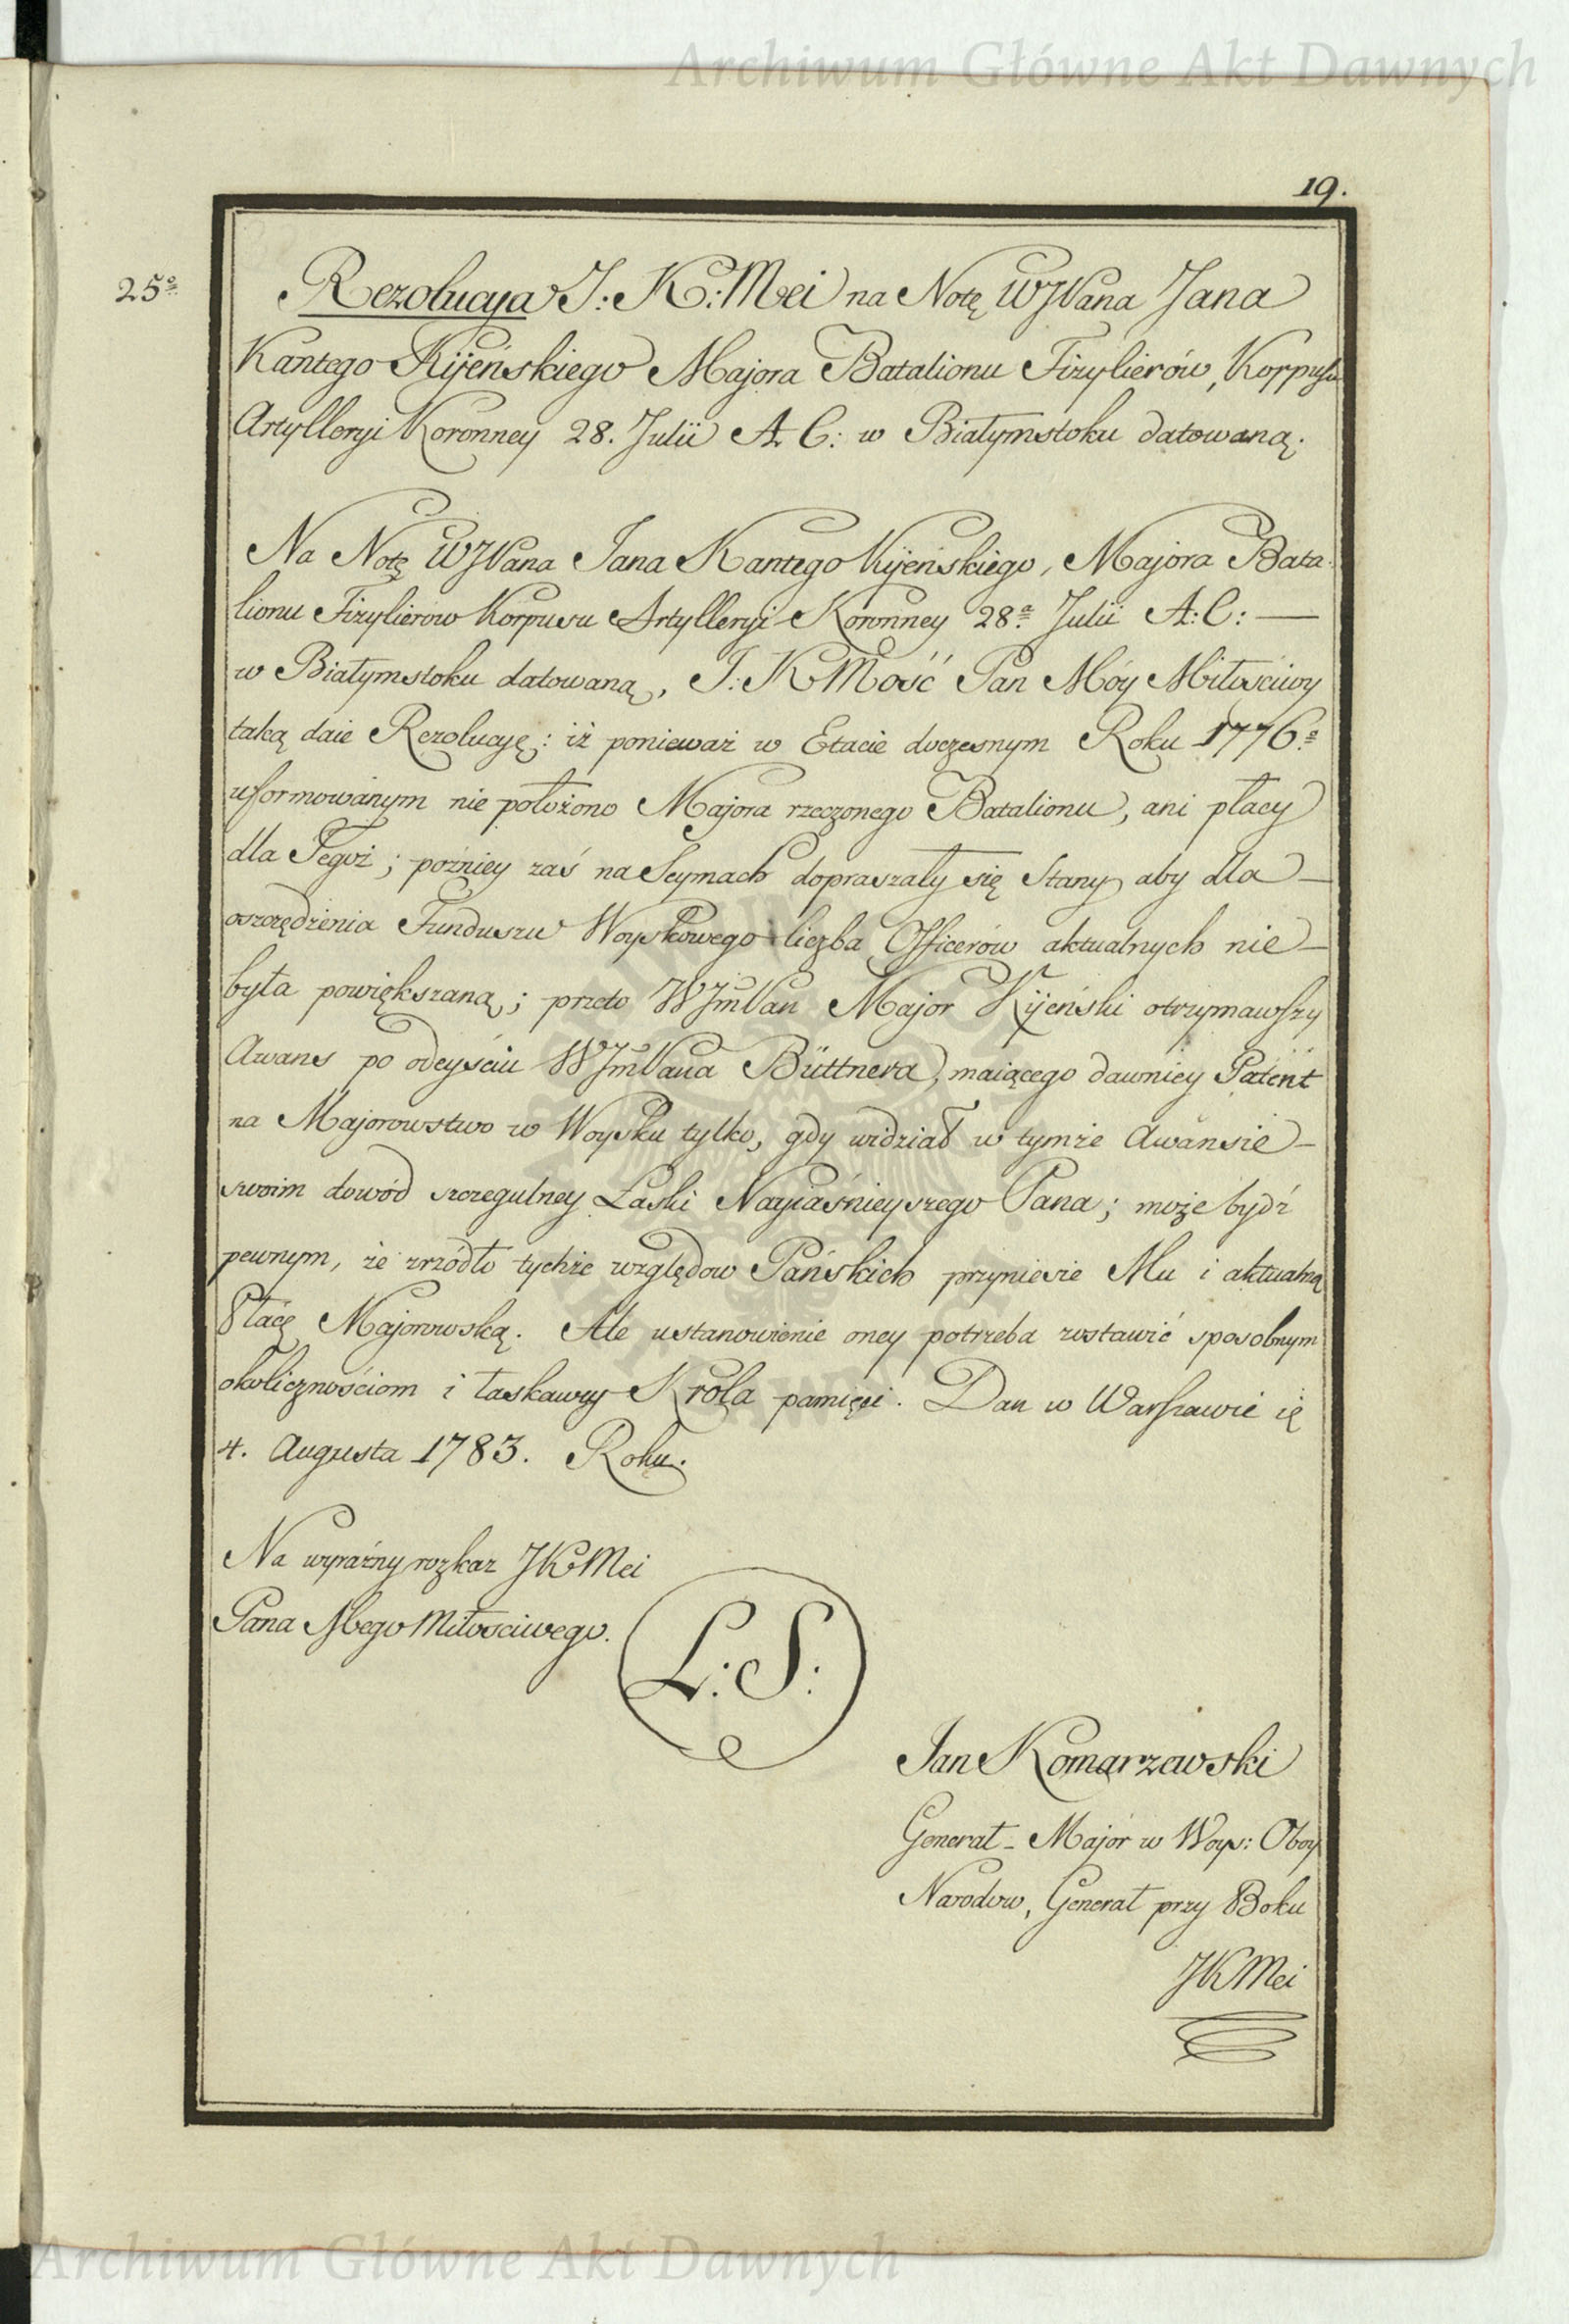 Archiwum Główne Akt Dawnych
19.
25º
Rezolucya J: K: Mci na Notę WJPana Jana
Kantego Kijeńskiego Majora Batalionu Fizylierów, Korpusu
Artylleryi Koronney 28. Julii A. C: w Białymstoku datowaną.
Na Notę WJPana Jana Kantego Kijeńskiego, Majora Bata-
lionu Fizylierow Korpusu Artylleryi Koronney 28ª Julii A: C: —
w Białymstoku datowaną, J: K Mość Pan Móy Miłościwy
taką daie Rezolucyę: iż ponieważ w Etacie doczesnym Roku 1776º
uformowanym nie położono Majora rzeczonego Batalionu, ani płacy
dla Tegoż; poźniey zaś na Seymach dopraszały się Stany aby dla —
oszczędzenia Funduszu Woyskowego liczba Officerów aktualnych nie —
była powiększaną; przeto WJmPan Major Kijeński otrzymawszy
Awans po odeyściu WJmPana Büttnera, maiącego dawniey Patent
na Majorowstwo w Woysku tylko, gdy widział w tymże Awansie —
swoim dowód szczegulney Łaski Nayiaśnieyszego Pana; może bydź
pewnym, że zrzódło tychże względow Pańskich przyniesie Mu i aktualną
Płacę Majorowską. Ale ustanowienie oney potrzeba zostawić sposobnym
okolicznościom i łaskawey Króla pamięci. Dan w Warszawie ię
4. Augusta 1783. Roku.
Na wyraźny rozkaz JKMci
Pana Mego Miłościwego.
L: S:
Jan Komarzewski
Generał - Major w Woys: Oboy
Narodow, Generał przy Boku
JKMci
Archiwum Główne Akt Dawnych